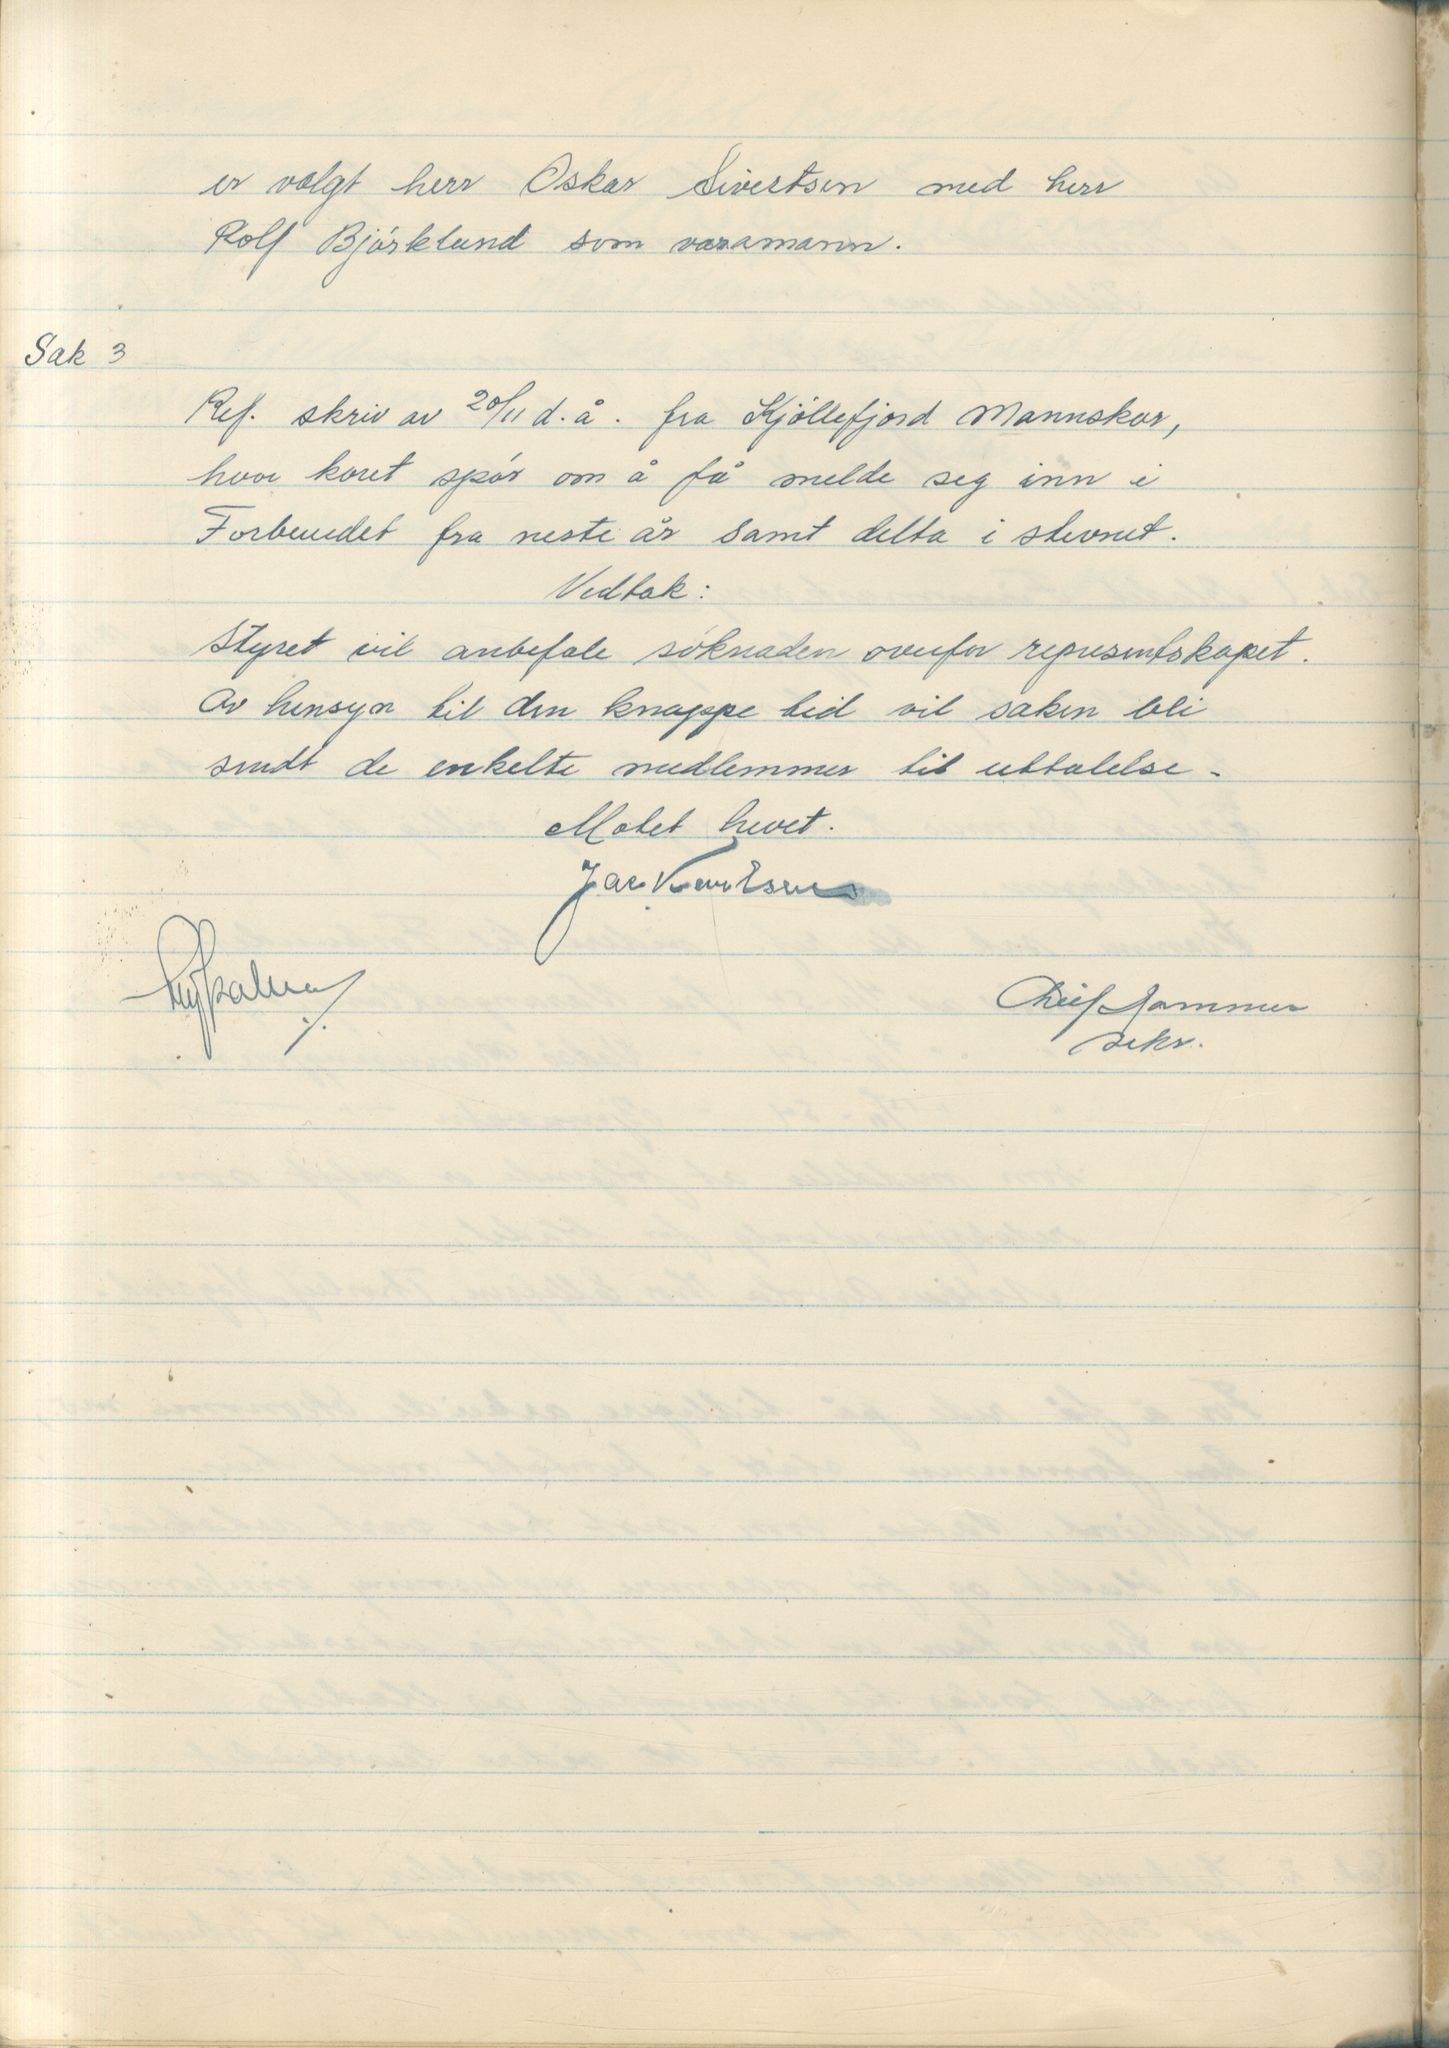 er valgt herr Oskar Sivertsen med herr
Rolf Bjórklund som varamann.
Sak 3
Ref. skriv av 20/11 d.å. fra Kjóllefjord Mannskor,
hvor koret spór om å få melde seg inn i
Forbundet fra neste år samt delta i stevnet.
Vedtak:
Styret vil anbefale sóknaden overfor representskapet.
Av hensyn til den knappe tid vil saken bli
sendt de enkelte medlemmer til uttalelse.
Mótet hevet.
Leif Hammer
sekr.